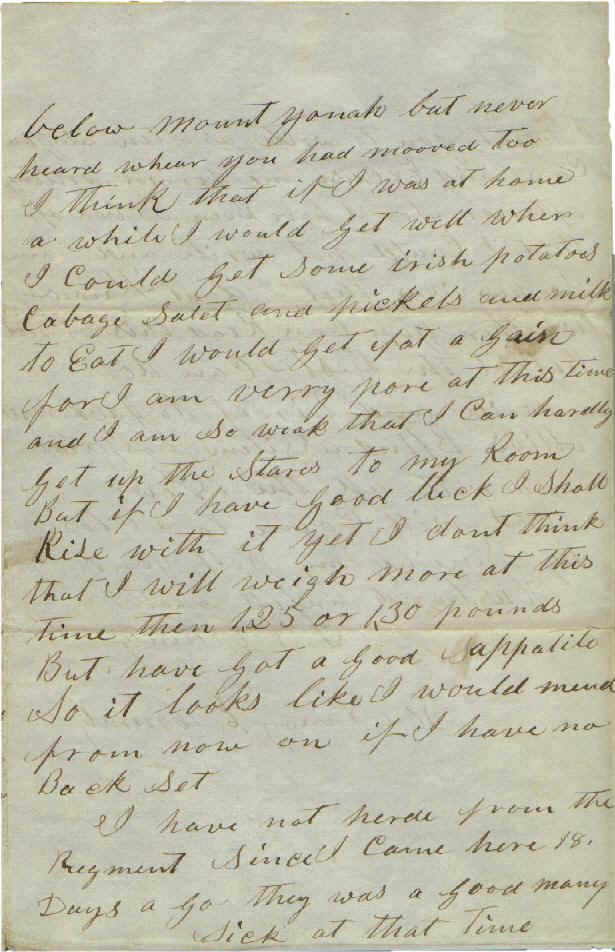 below mount yonah but never
heard whear you had mooved too
I think that if I was at home
a while I would get well when
I Could get some irish potatoes
Cabage Salet and pickels and milk
to Eat I would get fat a gain
for I am verry pore at this time
and I am so weak that I Can hardly
get up the Stares to my Room
But if I have good luck I Shall
Rise with it yet I dont think
that I will weigh more at this
time then 125 or 130 pounds
But have got a good appatite
So it looks like I would mend
from now on if I have no
Back Set
I have not herde from the
Regment Since I Came here 18.
Days a go they was a good many
Sick at that Time